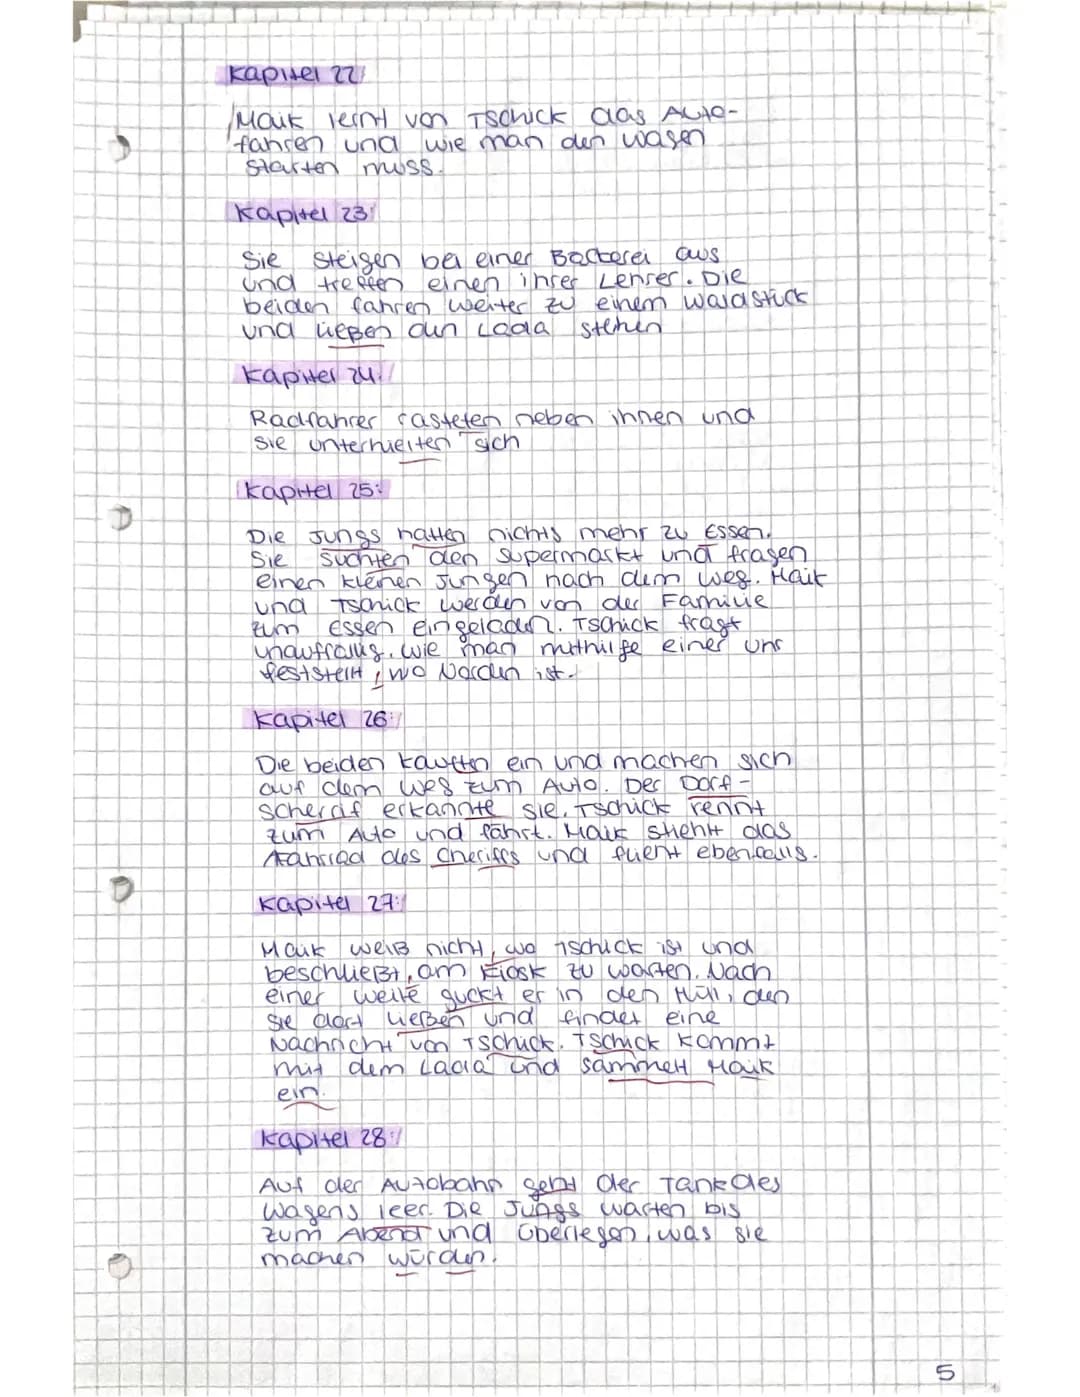 Kapitel 22:
Maik lernt von Tschick das Auto-
fahren und wie man den Wagen
starten muss.
Kapitel 23:
Sie steigen bei einer Bäckerei aus
und treffen einen ihrer Lehrer. Die
beiden fahren weiter zu einem Waldstück
und ließen den Lada stehen
Kapitel 24:
Radfahrer rasteten neben ihnen und
sie unterhielten sich
Kapitel 25:
Die Jungs hatten nichts mehr zu Essen.
Sie suchten den Supermarkt und fragen
einen kleinen Jungen nach dem Weg. Maik
und Tschick werden von der Familie
zum Essen eingeladen. Tschick fragt
unauffällig, wie man mithilfe einer Uhr
feststellt, wo Norden ist.
Kapitel 26:
Die beiden kauften ein und machen sich
auf dem Weg zum Auto. Der Dorf-
scheraif erkannte sie. Tschick rennt
zum Auto und fährt. Maik stiehlt das
Fahrrad des Cheriffs und flieht ebenfalls.
Kapitel 27:
Maik weiß nicht, wo Tschick ist und
beschließt, am Kiosk zu warten. Nach
einer Weile guckt er in den Müll, den
sie dort ließen und findet eine
Nachricht von Tschick. Tschick kommt
mit dem Lada und sammelt Maik
ein.
Kapitel 28:
Auf der Autobahn geht der Tank des
Wagens leer. Die Jungs warten bis
zum Abend und überlegen, was sie
machen würden.
5